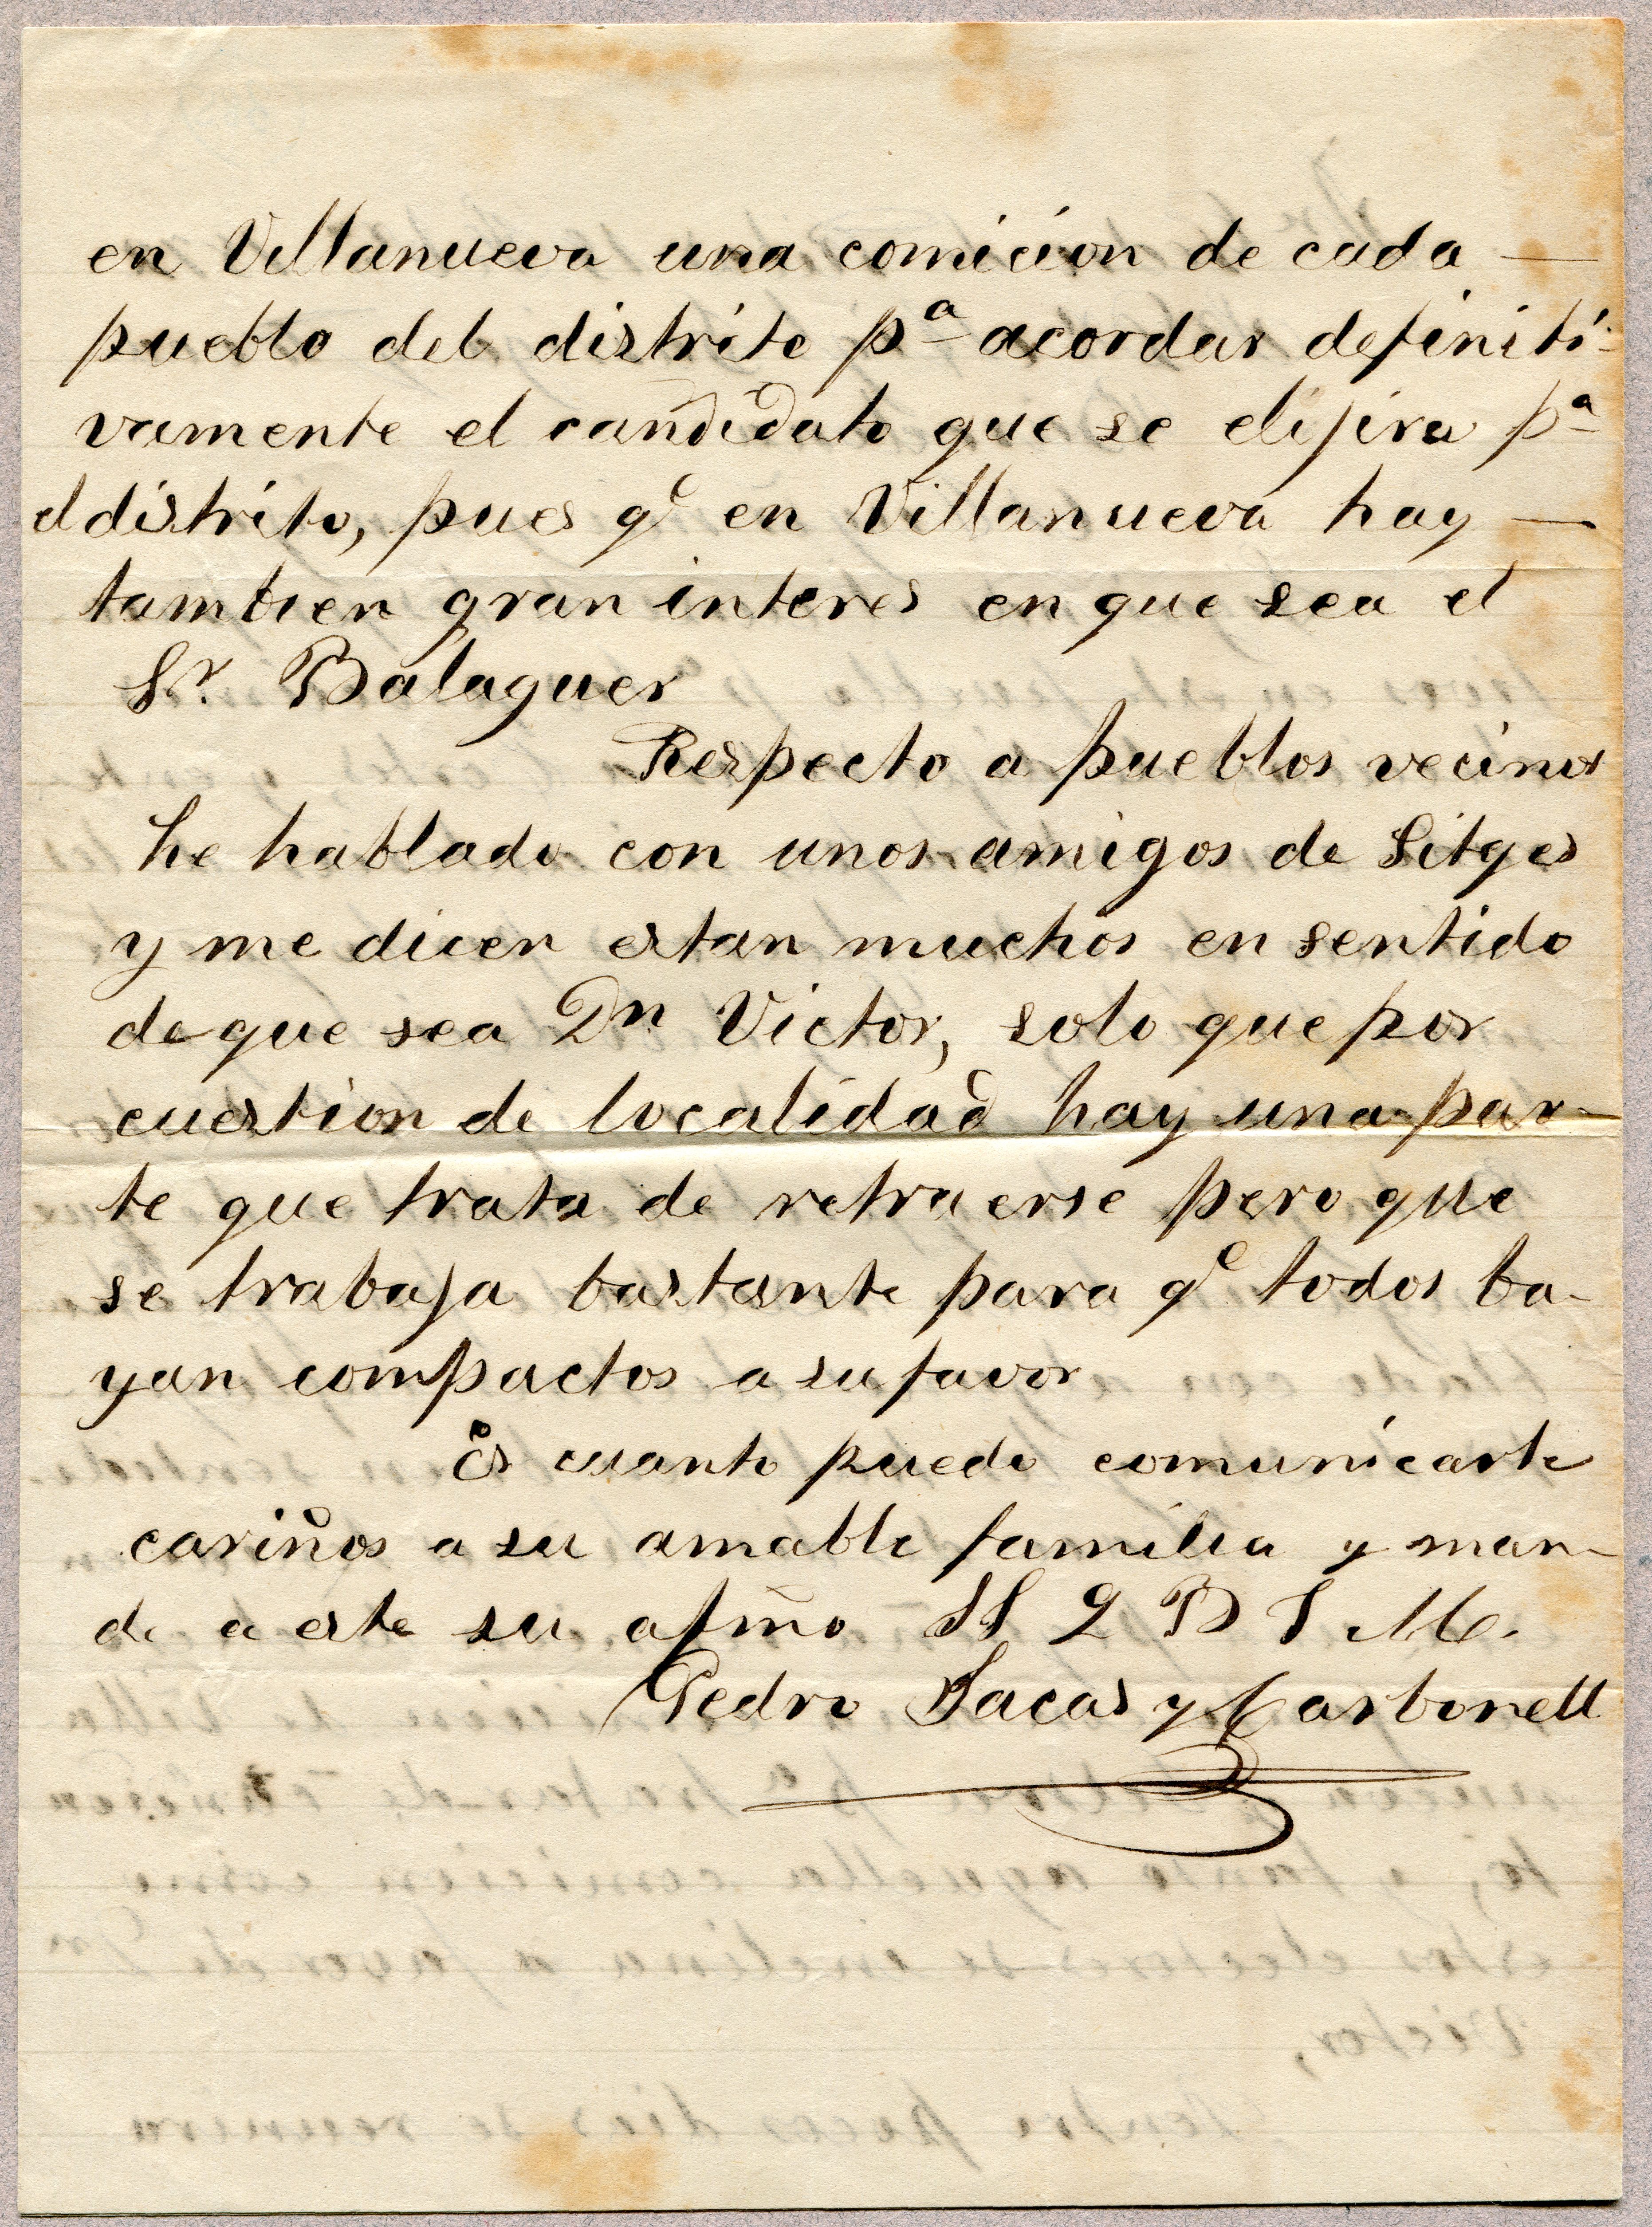 en Villanueva una comicion de cada —
pueblo del distrito pª acordar definiti-
vamente el candidato que se elijira pª
el distrito, pues qᵉ en Villanueva hay —
tambien gran interes en que sea el
Sr. Balaguer
Respecto a pueblos vecinos
he hablado con unos amigos de Sitges
y me dicen estan muchos en sentido
de que sea Dn Victor, solo que por
cuestion de localidad hay una par-
te que trata de retraerse pero que
se trabaja bastante para qᵉ todos ba-
yan compactos a su favor
Es cuanto puedo comunicarte
cariños a su amable familia y man-
de a este su afmo SS Q B S M.
Pedro Jacas y Carbonell